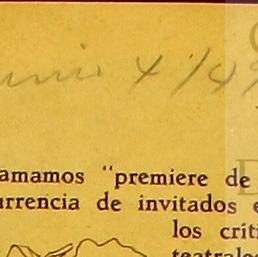 4/49
amamos "premiere de
urrencia de invitados e
los críti
teatrales